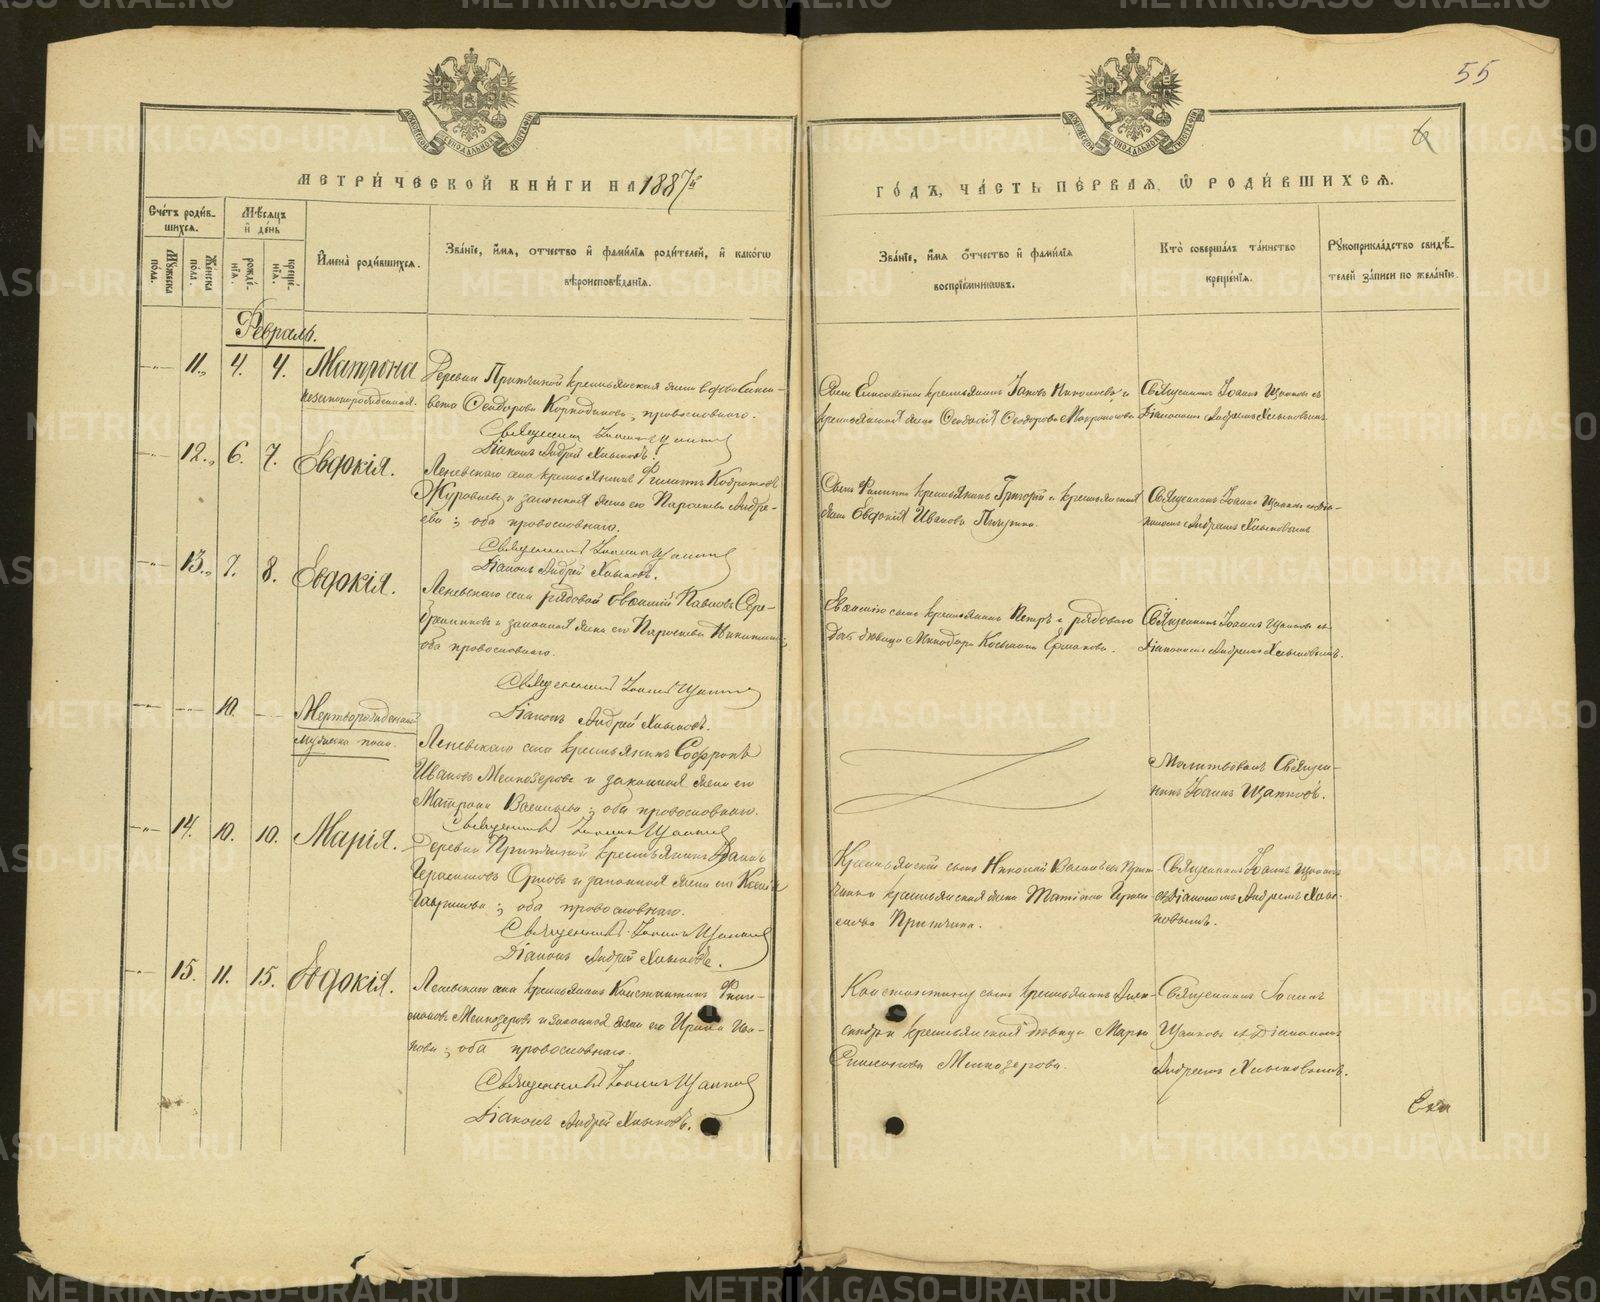 55
6
МЕТРИ́ЧЕСКОЙ КНИ́ГИ НА 1887й
ГО́ДЪ, ЧА́СТЬ ПЕ́РВАЯ, Ѿ РОДИ́ВШИХСЯ.
Сче́тъ роди́в-
шихся.
Му́жеска по́ла.
Же́нска по́ла.
Мѣ́сяцъ
и҆ де́нь
рожде́-
нїя.
креще́-
нїя.
И҆мена̀ роди́вшихся.
Зва́нїе, и҆́мя, ѻ҆́тчество и҆ фами́лїя роди́телей, и҆ како́гѡ
вѣроисповѣ́данїя.
Зва́нїе, и҆́мя ѻ҆́тчество и҆ фами́лїя
воспрїе́мникѡвъ.
Кто̀ соверша́лъ та́инство
креще́нїя.
Рꙋкоприкла́дство свидѣ́-
телей за́писи по жела́нїю.
Февраль.
11. 4. 4. Матрона
незаконнорожденная.
Деревни Притчиной крестьянская жена вдова Елиса-
вета Феодорова ; православнаго.
Священникъ Іоаннъ Щапковъ
Діаконъ Андрей Хлыновъ.
крестьянинъ Іаковъ Николаевъ и
крестьянская жена Феодосія Феодорова
Священникъ Іоаннъ Щапковъ съ
Діакономъ Андреемъ Хлыновымъ.
12. 6. 7. Евдокія.
Леневскаго села крестьянинъ Филиппъ Кондратовъ
Журавлевъ и законная жена его Параскева Андре-
ева ; оба православнаго.
Священникъ Іоаннъ Щапковъ
Діаконъ Андрей Хлыновъ.
Филиппа крестьянинъ Григорій и крестьянская
жена Евдокія Иванова
Священникъ Іоаннъ Щапковъ съ Діа-
кономъ Андреемъ Хлыновымъ
13. 7. 8. Евдокія.
Леневскаго села рядовой Евсевій Павловъ Сере-
бренниковъ и законная жена его Параскева Никитина ;
оба православнаго.
Священникъ Іоаннъ Щапковъ
Діаконъ Андрей Хлыновъ.
сынъ крестьянинъ Петръ и рядового
дочь дѣвица Минодора Косьмина Ермакова.
Священникъ Іоаннъ Щапковъ съ
Діакономъ Андреемъ Хлыновымъ.
10. Мертворожденный
мужеска пола.
Леневскаго села крестьянинъ Софронъ
Ивановъ Мелкозеровъ и законная жена его
Матрона Васильева ; оба православнаго.
Священникъ Іоаннъ Щапковъ
Молитвовалъ Священ-
никъ Іоаннъ Щапковъ.
14. 10. 10. Марія.
Деревни Притчиной крестьянинъ Іоаннъ
Герасимовъ Орловъ и законная жена его Ксенія
Гаврилова ; оба православнаго.
Священникъ Іоаннъ Щапковъ
Діаконъ Андрей Хлыновъ.
Крестьянскій сынъ Николай Васильевъ Прит-
чинъ и крестьянская жена
Притчина.
Священникъ Іоаннъ Щапковъ
съ Діакономъ Андреемъ Хлы-
новымъ.
15. 11. 15. Евдокія.
Леневскаго села крестьянинъ Константинъ Фили-
моновъ Мелкозеровъ и законная жена его Ирина Ива-
нова ; оба православнаго.
Священникъ Іоаннъ Щапковъ
Діаконъ Андрей Хлыновъ.
Константину сынъ крестьянинъ Алек-
сандръ и крестьянская дѣвица Марія
Мелкозерова.
Священникъ Іоаннъ
Щапковъ съ Діакономъ
Андреемъ Хлыновымъ.
METRIKI.GASO-URAL.RU